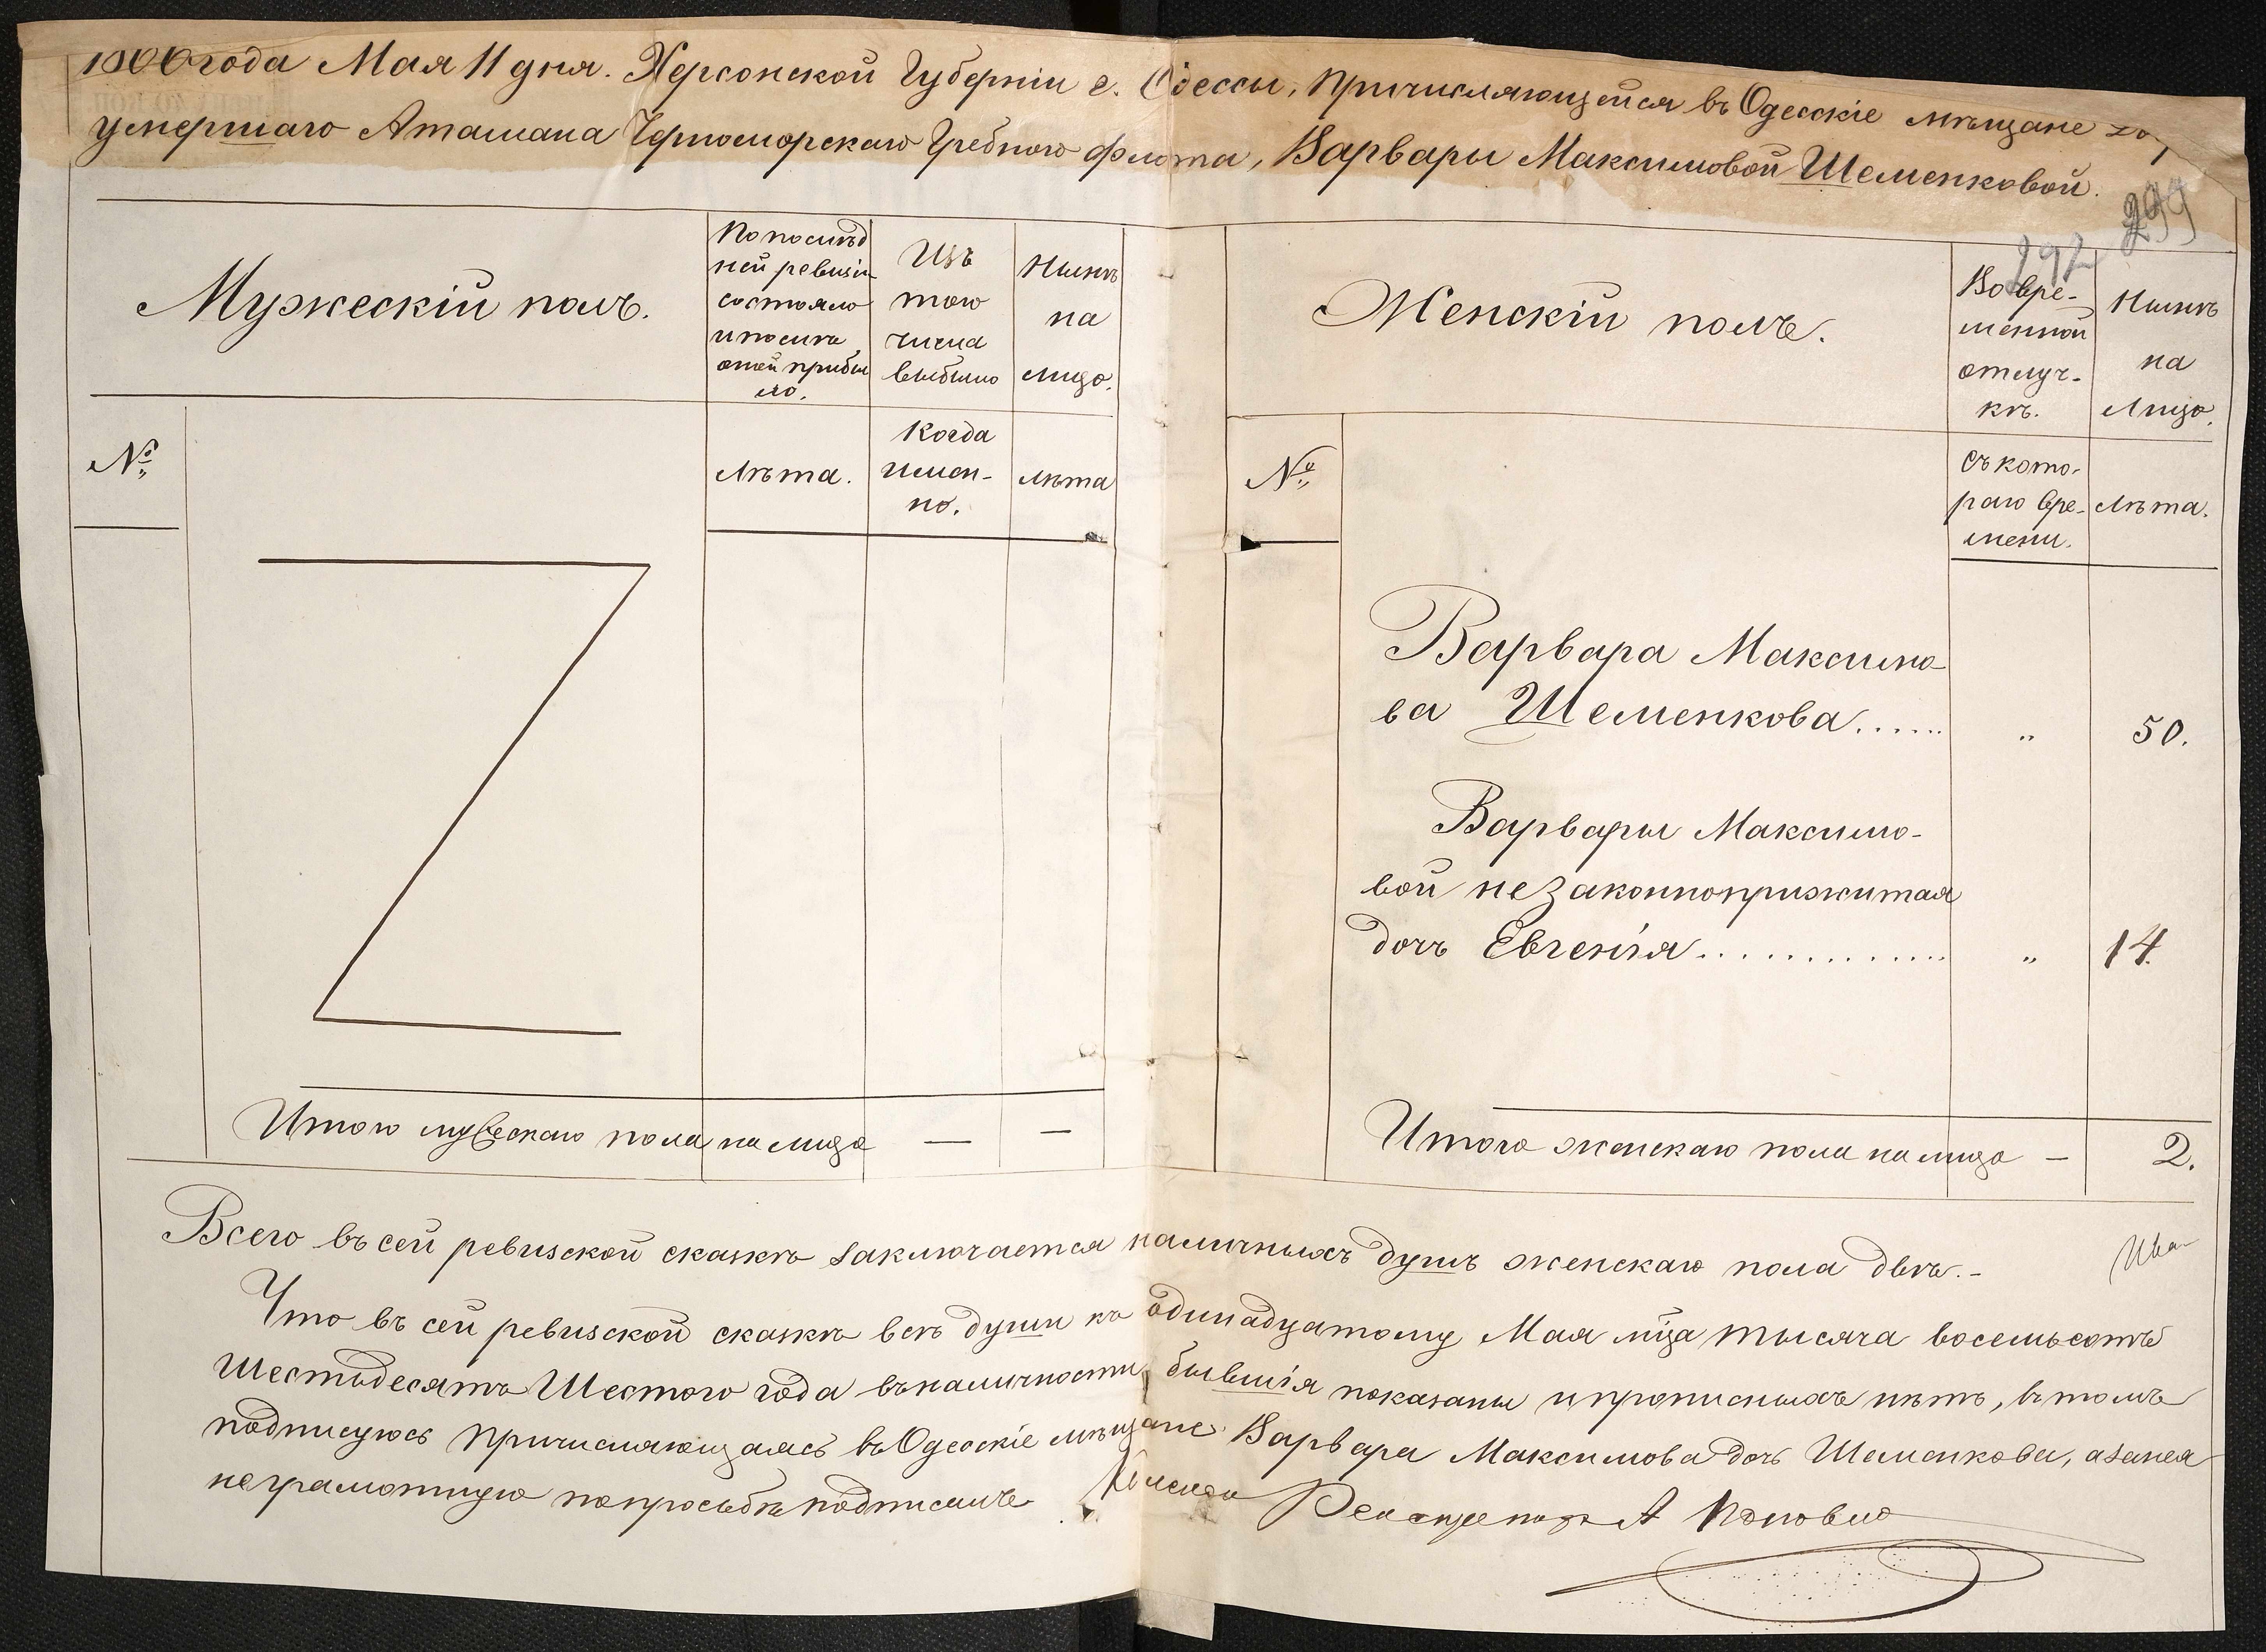 1866 года Мая 11 дня. Херсонской Губерніи г. Одессы, причисляющейся въ Одесскіе мѣщане
умершаго Атамана Черноморскаго Гребного флота, Варвары Максимовой Шеменковой.
299
292
Мужескій полъ.
По послѣд
ней ревизіи
состояло
и послѣ
оной прибы
ло.
Изъ
того
числа
выбыло
Нынѣ
на
лицо.
№
Лѣта.
Когда
имен-
но.
Лѣта
Итого мужескаго пола на лицо — —
Женскій полъ.
Во вре-
менной
отлуч-
кѣ.
Нынѣ
на
Лицо.
№
Съ кото-
раго вре-
мени.
Лѣта.
Варвара Максимо
ва Шеменкова...... „ 50.
Варвары Максимо-
вой незаконноприжитая
дочь Евгенія.............. „ 14.
Итого женскаго пола на лицо — 2.
Всего въ сей ревизской сказкѣ заключается наличныхъ душъ женскаго пола двѣ.-
Что въ сей ревизской сказкѣ всѣ души къ одинадцатому Мая мца тысяча восемьсотъ
Шестьдесятъ Шестого года въ наличности бывшія показаны и прописныхъ нѣтъ, въ томъ
подписуюсь причисляющаясь въ Одесскіе мѣщане Варвара Максимова дочь Шеменкова, а за нея
неграмотную по просьбѣ подписалъ А